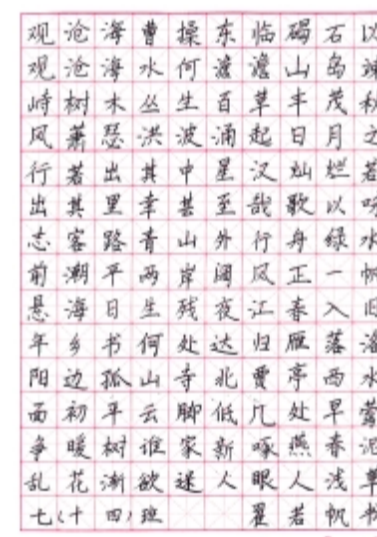 观沧海曹操东临碣石以
观沧海水何澹澹山岛竦
峙树木丛生百草丰茂秋
风萧瑟洪波涌起日月之
行若出其中星汉灿烂若
出其里幸甚至哉歌以咏
志客路青山外行舟绿水
前潮平两岸阔风正一帆
悬海日生残夜江春入旧
年乡书何处达归雁落洛
阳边孤山寺北贾亭西水
面初平云脚低几处早莺
争暖树谁家新啄燕春泥
乱花渐欲迷人眼人浅草
七(十四)班 翟若帆书